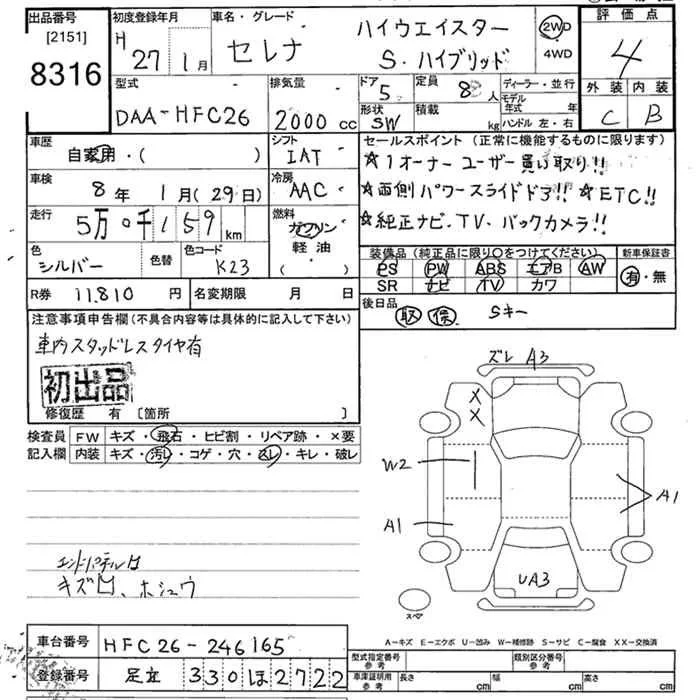 出品番号 初度登録年月 車名・グレード 評価点
[2151] H 27年 1月 セレナ ハイウエイスター S・ハイブリッド 2WD・4WD 4
8316
型式 排気量 ドア 定員 ディーラー・並行 外装 内装
DAA-HFC26 2000cc 5 8人 モデル年式 年 C B
形状 積載 ハンドル 左・右
SW kg
車歴 シフト セールスポイント (正常に機能するものに限ります)
自家用・( ) IAT ☆1オーナーユーザー買い取り!!
車検 冷房
8年 1月(29日) AAC ☆両側パワースライドドア!! ☆ETC!!
走行 燃料
5万0千159km ガソリン ☆純正ナビ.TV、バックカメラ!!
軽油
( )
色 色替 色コード 装備品 (純正品に限り○をつけてください) 新車保証書
シルバー K23 PS PW ABS エアB AW 有・無
SR ナビ TV カワ
R券 11,810円 名変期限 月 日 後日品 取 保 Sキー
注意事項申告欄(不具合内容等は具体的に記入して下さい)
車内スタッドレスタイヤ有
初出品
修復歴 有 [箇所 ]
ズレ A3
検査員 FW キズ・飛石・ヒビ割・リペア跡・×要
記入欄 内装 キズ・汚レ・コゲ・穴・スレ・キレ・破レ
W2
A1 A1
UA3
キズ凹、ホシュウ
スペア
A-キズ E-エクボ U-凹み W-補修跡 S-サビ C-腐食 XX-交換済
車台番号 HFC26-246165
型式指定番号 参考 類別区分番号 参考
登録番号 足立 330ほ2722
車庫証明用 参考 長さ cm 幅 cm 高さ cm